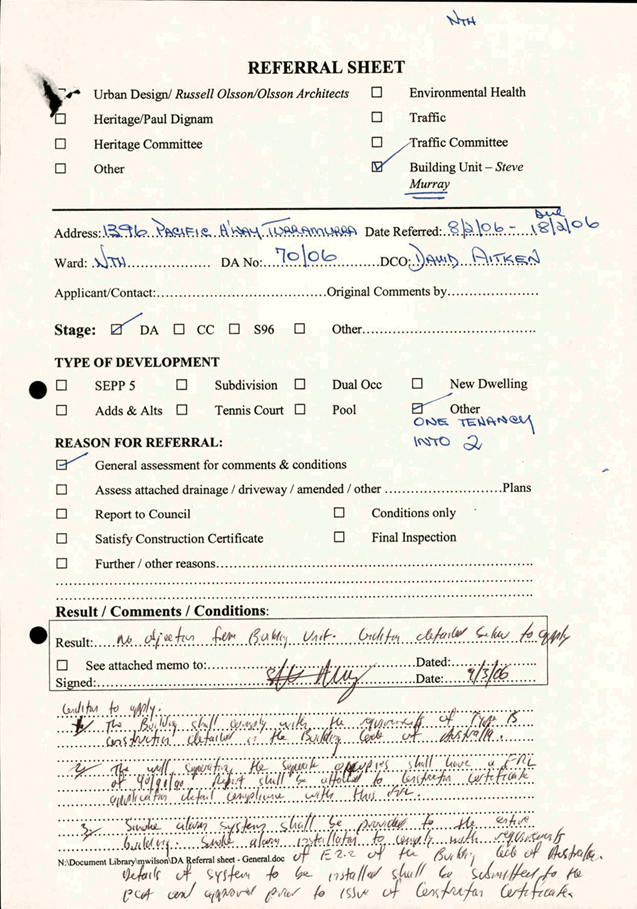 NTH
REFERRAL SHEET
Urban Design/ Russell Olsson/Olsson Architects ☐ Environmental Health
☐ Heritage/Paul Dignam ☐ Traffic
☐ Heritage Committee ☐ Traffic Committee
☐ Other ☑ Building Unit – Steve
Murray
Due
Address: 1396 PACIFIC H'WAY, TURRAMURRA Date Referred: 8/2/06 - 18/2/06
Ward: NTH DA No: 70/06 DCO: DAVID AITKEN
Applicant/Contact: Original Comments by
Stage: ☑ DA ☐ CC ☐ S96 ☐ Other
TYPE OF DEVELOPMENT
☐ SEPP 5 ☐ Subdivision ☐ Dual Occ ☐ New Dwelling
☐ Adds & Alts ☐ Tennis Court ☐ Pool ☑ Other
ONE TENANCY
INTO 2
REASON FOR REFERRAL:
☑ General assessment for comments & conditions
☐ Assess attached drainage / driveway / amended / other Plans
☐ Report to Council ☐ Conditions only
☐ Satisfy Construction Certificate ☐ Final Inspection
☐ Further / other reasons
Result / Comments / Conditions:
Result: No objection from Building Unit. Condition detailed below to apply
☐ See attached memo to: Dated:
Signed: Date: 9/3/06
Condition to apply.
1/ The Building shall comply with the requirements of Type B
construction detailed in the Building Code of Australia.
2/ The wall separating the separate occupancies shall have a FRL
of shall be attached to Construction Certificate
application detail compliance with this FRL.
3/ Smoke alarm system shall be provided to the entire
building. Smoke alarm installation to comply with requirements
N:\Document Library\mwilson\DA Referral sheet - General.doc of E2.2 of the Building Code of Australia.
Details of system to be installed shall be submitted to the
PCA and approved prior to issue of Construction Certificate.